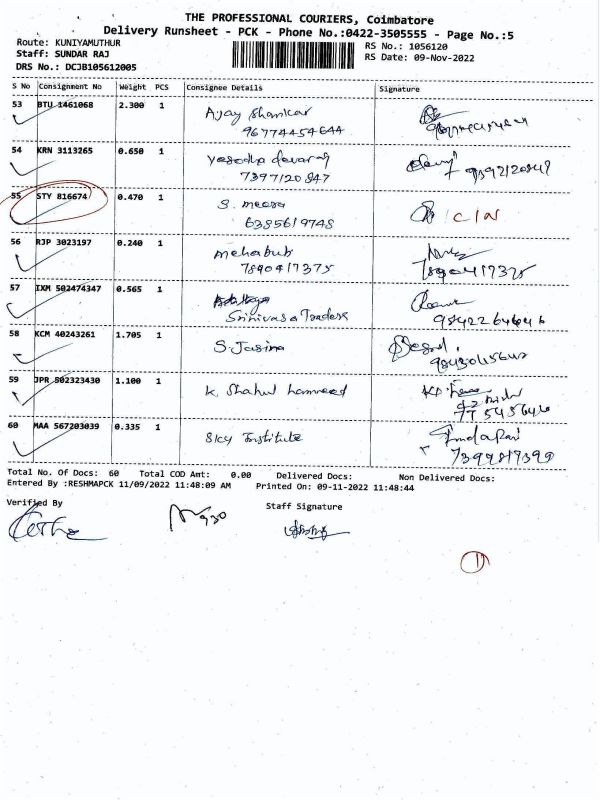 THE PROFESSIONAL COURIERS, Coimbatore
Delivery Runsheet - PCK - Phone No.:0422-3505555 - Page No.:5
Route: KUNIYAMUTHUR
RS No.: 1056120
Staff: SUNDAR RAJ
RS Date: 09-Nov-2022
DRS No.: DCJB105612005
S No Consignment No Weight PCS Consignee Details Signature
53 BTU 1461068 2.300 1 Ajay Shankar
96774454644
54 KRN 3113265 0.650 1 Yasodha devaraj
7397120847
55 STY 816674 0.470 1 S. meera C/N
6385619748
56 RJP 3023197 0.240 1 mehabub
7890417375 7890417375
57 IXM 502474347 0.565 1
Srinivasa Traders 9842264646
58 KCM 40243261 1.705 1 S. Jasima
59 JPR 502323430 1.100 1 K. Shahul hameed
60 MAA 567203039 0.335 1 Sky Institute
7399817399
Total No. Of Docs: 60 Total COD Amt: 0.00 Delivered Docs: Non Delivered Docs:
Entered By :RESHMAPCK 11/09/2022 11:48:09 AM Printed On: 09-11-2022 11:48:44
Verified By Staff Signature
930
1